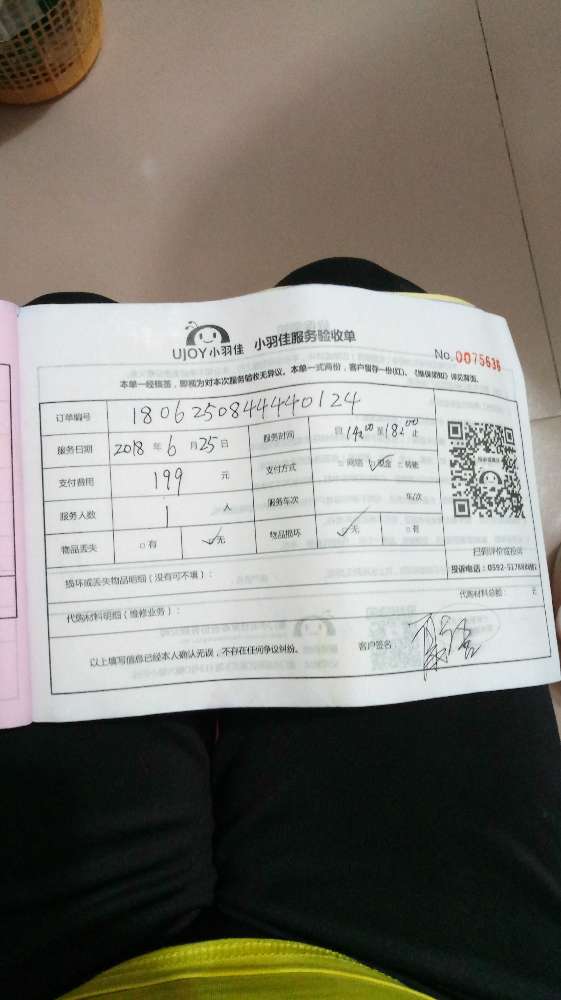 UJOY小羽佳 小羽佳服务验收单
No.0075636
本单一经填签，即视为对本次服务验收无异议。本单一式两份，客户留存一份(红)。《维保须知》详见背面。
订单编号 18062508444440124
服务日期 2018 年 6 月 25 日 服务时间 自 14:00 至 18:00 止
支付费用 199 元 支付方式 □网络 ☑现金 □转账
服务人数 1 人 服务车次 车/次
物品丢失 □有 ☑无 物品损坏 ☑无 □有
扫码评价或投诉
损坏或丢失物品明细（没有可不填）：
代购材料明细（维修业务）： 代购材料总额： 元
以上填写信息已经本人确认无误，不存在任何争议纠纷。 客户签名